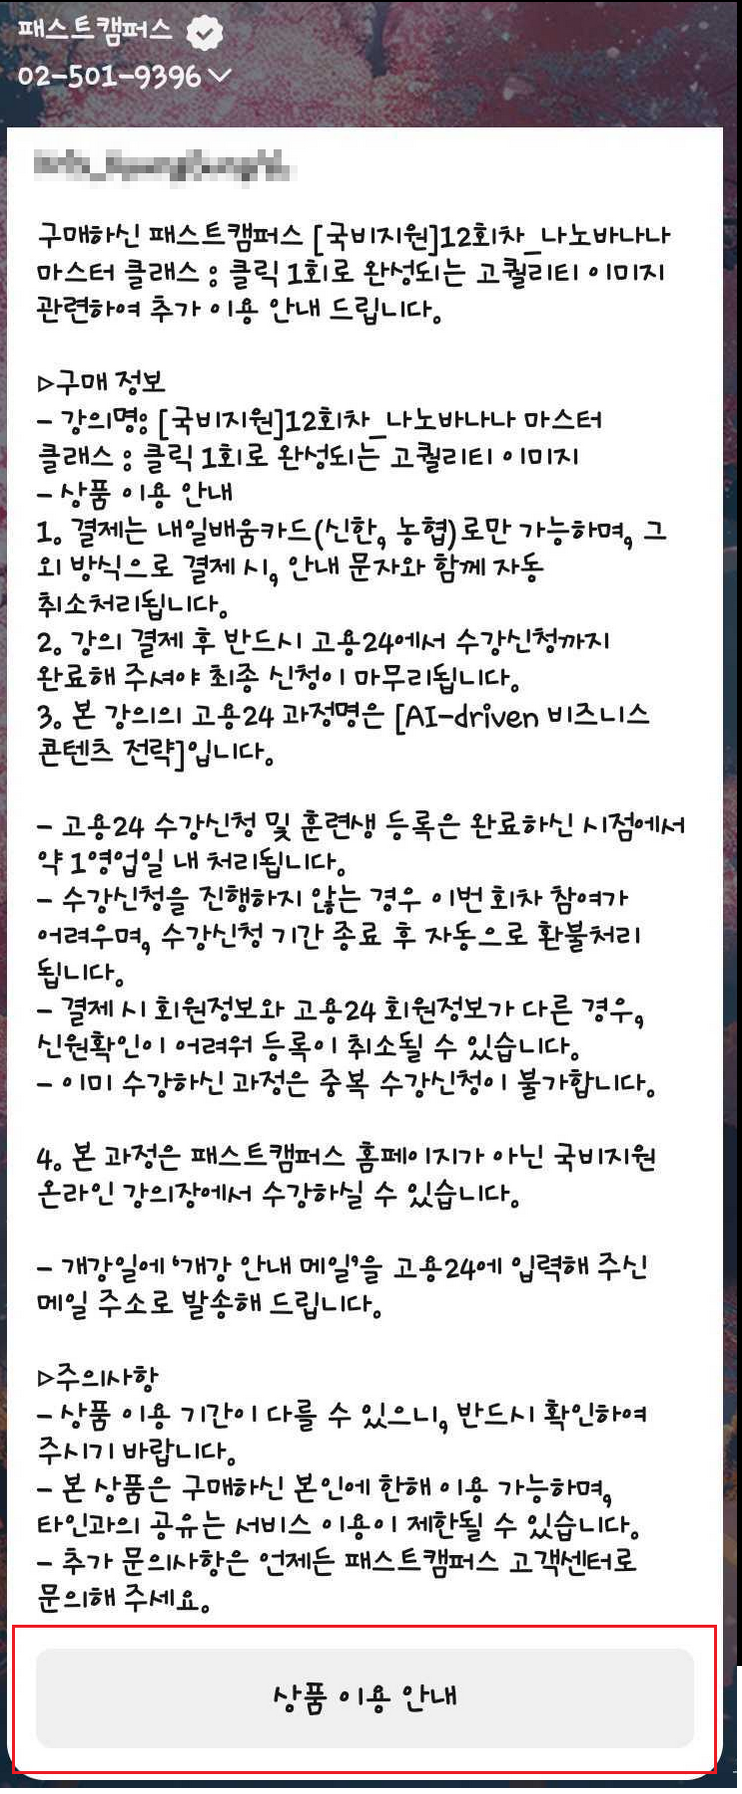 패스트캠퍼스
02-501-9396
구매하신 패스트캠퍼스 [국비지원]12회차_나노바나나
마스터 클래스 : 클릭 1회로 완성되는 고퀄리티 이미지
관련하여 추가 이용 안내 드립니다.
▷구매 정보
- 강의명: [국비지원]12회차_나노바나나 마스터
클래스 : 클릭 1회로 완성되는 고퀄리티 이미지
- 상품 이용 안내
1. 결제는 내일배움카드(신한, 농협)로만 가능하며, 그
외 방식으로 결제 시, 안내 문자와 함께 자동
취소처리됩니다.
2. 강의 결제 후 반드시 고용24에서 수강신청까지
완료해 주셔야 최종 신청이 마무리됩니다.
3. 본 강의의 고용24 과정명은 [AI-driven 비즈니스
콘텐츠 전략]입니다.
- 고용24 수강신청 및 훈련생 등록은 완료하신 시점에서
약 1영업일 내 처리됩니다.
- 수강신청을 진행하지 않는 경우 이번 회차 참여가
어려우며, 수강신청 기간 종료 후 자동으로 환불처리
됩니다.
- 결제 시 회원정보와 고용24 회원정보가 다른 경우,
신원확인이 어려워 등록이 취소될 수 있습니다.
- 이미 수강하신 과정은 중복 수강신청이 불가합니다.
4. 본 과정은 패스트캠퍼스 홈페이지가 아닌 국비지원
온라인 강의장에서 수강하실 수 있습니다.
- 개강일에 '개강 안내 메일'을 고용24에 입력해 주신
메일 주소로 발송해 드립니다.
▷주의사항
- 상품 이용 기간이 다를 수 있으니, 반드시 확인하여
주시기 바랍니다.
- 본 상품은 구매하신 본인에 한해 이용 가능하며,
타인과의 공유는 서비스 이용이 제한될 수 있습니다.
- 추가 문의사항은 언제든 패스트캠퍼스 고객센터로
문의해 주세요.
상품 이용 안내